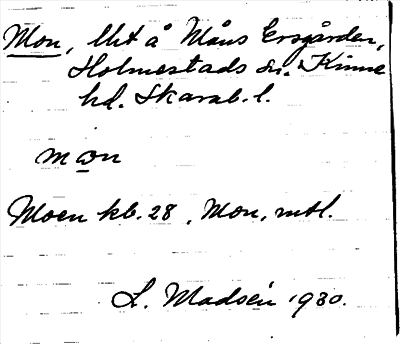 Mon, lht å Måns Ersgården,
Holmestads sn. Kinne
hd. Skarab. l.
mon
Moen kb. 28, Mon, mtl.
L. Madsén 1930.